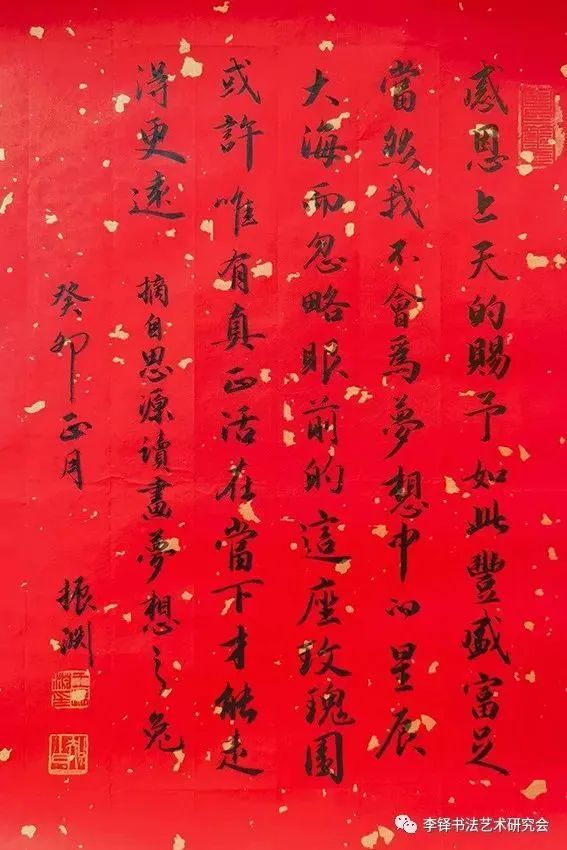 感恩上天的賜予如此豐盛富足
當然我不會爲夢想中的星辰
大海而忽略眼前的這座玫瑰園
或許唯有真正活在當下才能走
得更遠
摘自思源讀畫夢想之兔
癸卯正月
振渊
李铎书法艺术研究会